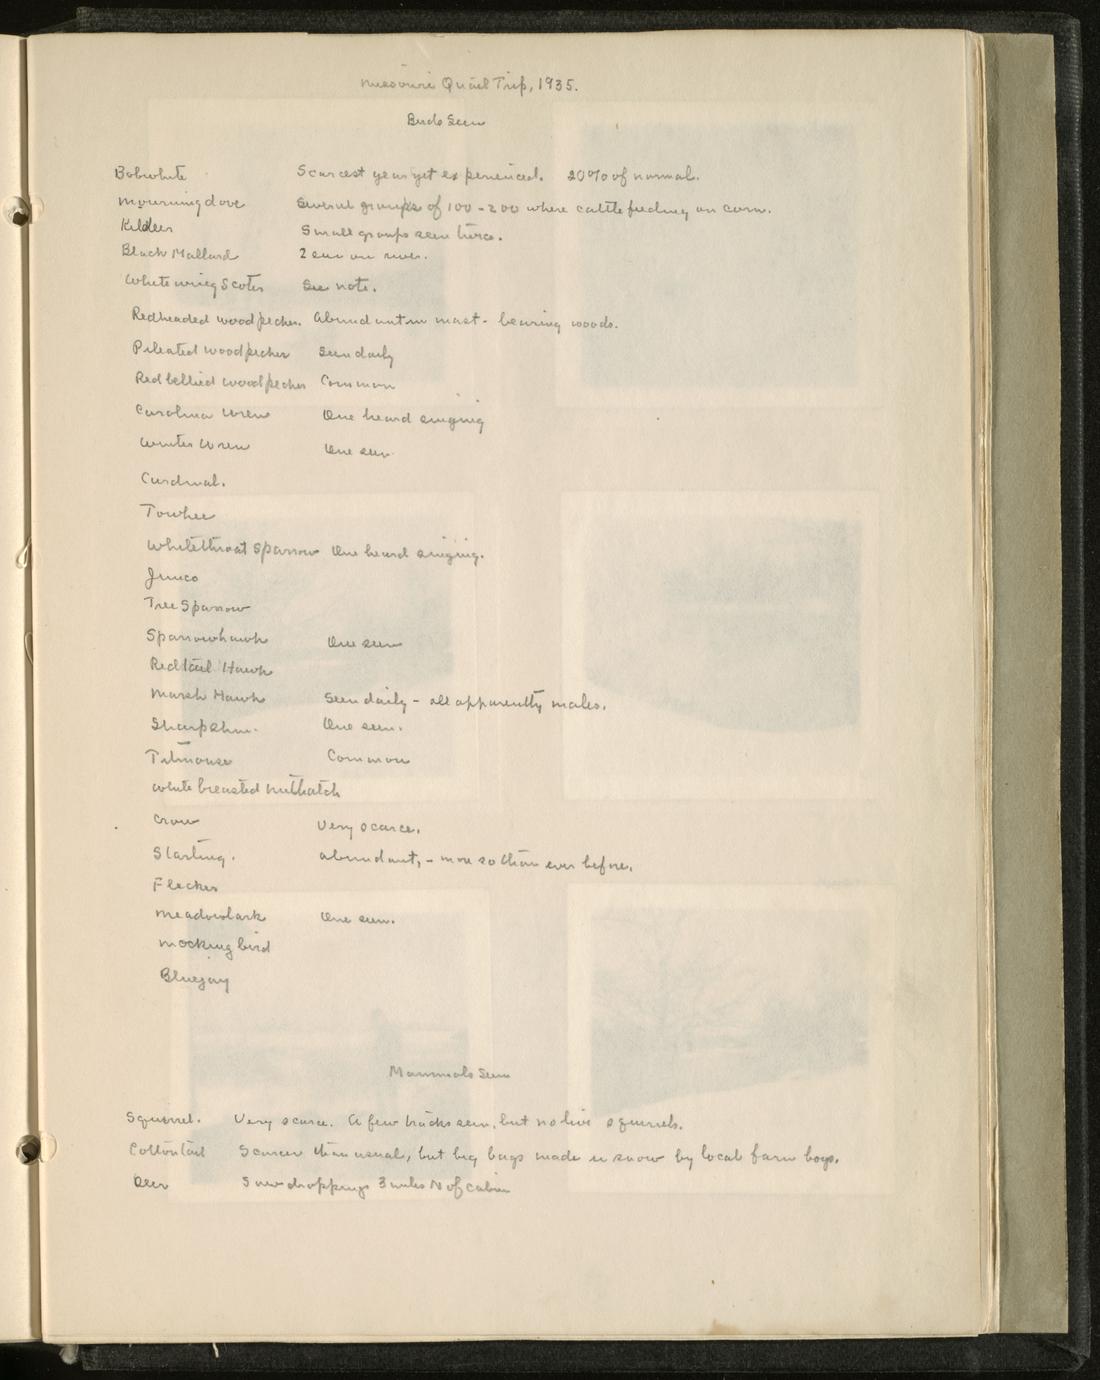 Missouri Quail Trip, 1935.
Birds Seen
Bobwhite Scarcest year yet experienced. 20% of normal.
Mourning dove Several groups of 100-200 where cattle feeding on corn.
Killdeer Small groups seen twice.
Black Mallard 2 seen on river.
Whitewing Scoter See note.
Redheaded woodpecker. Abundant in mast-bearing woods.
Pileated woodpecker Seen daily
Redbellied woodpecker Common
Carolina Wren One heard singing
Winter Wren One seen
Cardinal.
Towhee
Whitethroat Sparrow One heard singing.
Junco
Tree Sparrow
Sparrowhawk One seen
Redtail Hawk
Marsh Hawk Seen daily - all apparently males.
Sharpshin. One seen.
Titmouse Common
White breasted nuthatch
Crow Very scarce.
Starling. Abundant, - more so than ever before.
Flicker
Meadowlark One seen.
Mockingbird
Bluejay
Mammals Seen
Squirrel. Very scarce. A few tracks seen, but no live squirrels.
Cottontail Scarcer than usual, but big bags made in snow by local farm boys.
Deer Saw droppings 3 miles N of cabin